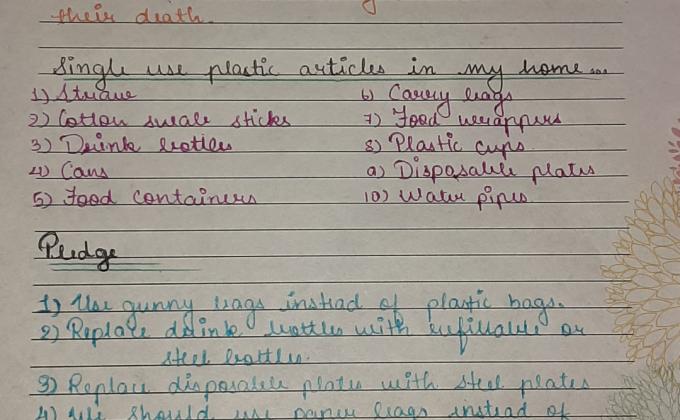 their death.
Single use plastic articles in my home...
1) Straw
2) Cotton swab sticks
3) Drink bottles
4) Cans
5) Food containers
6) Carry bags
7) Food wrappers
8) Plastic cups
9) Disposable plates
10) Water pipes
Pledge
1) Use gunny bags instead of plastic bags.
2) Replace drink bottles with refillable or
steel bottles.
3) Replace disposable plates with steel plates
4) We should use paper bags instead of